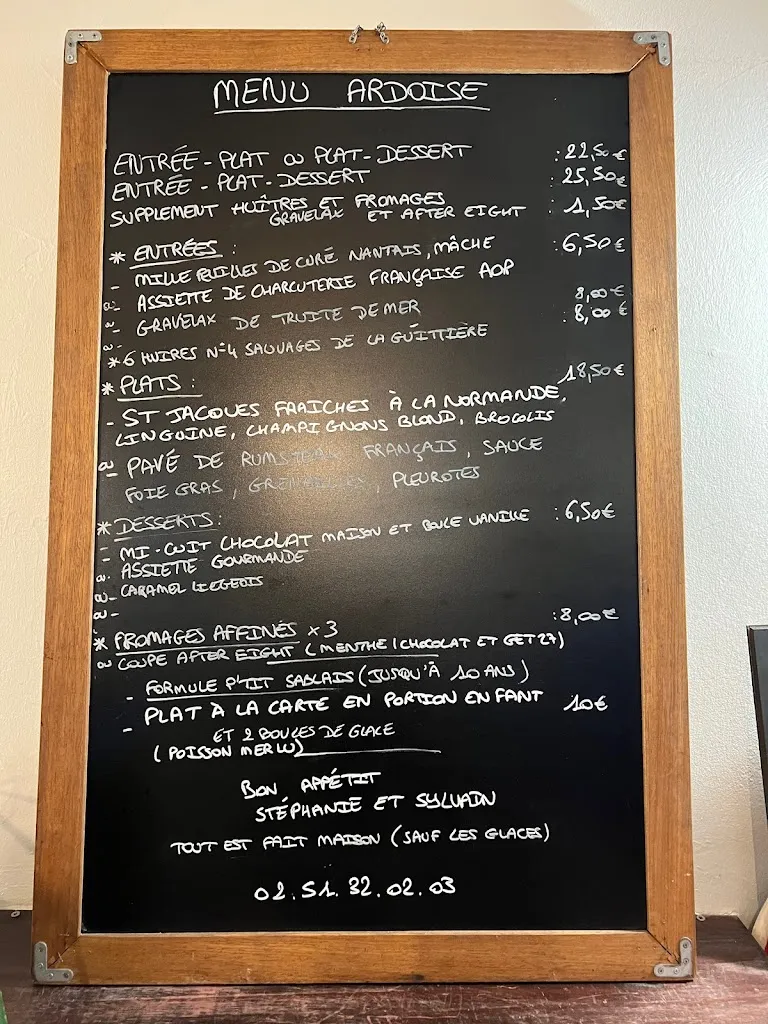 MENU ARDOISE
ENTRÉE - PLAT OU PLAT - DESSERT : 22,50€
ENTRÉE - PLAT - DESSERT : 25,50€
SUPPLEMENT HUÎTRES ET FROMAGES : 1,50€
GRAVELAX ET AFTER EIGHT
* ENTRÉES : : 6,50€
- MILLE FEUILLES DE CURÉ NANTAIS, MÂCHE
ou - ASSIETTE DE CHARCUTERIE FRANÇAISE AOP
ou - GRAVELAX DE TRUITE DE MER 8,00€
ou - : 8,00€
* 6 HUIRES N°4 SAUVAGES DE LA GUITTIÈRE
* PLATS : 18,50€
- ST JACQUES FRAICHES À LA NORMANDE,
LINGUINE, CHAMPIGNONS BLOND, BROCOLIS
ou - PAVÉ DE RUMSTEAK FRANÇAIS, SAUCE
FOIE GRAS, GRENAILLES, PLEUROTES
* DESSERTS : : 6,50€
- MI-CUIT CHOCOLAT MAISON ET BOULE VANILLE
ou - ASSIETTE GOURMANDE
ou - CARAMEL LIEGEOIS
ou -
* FROMAGES AFFINÉS x 3 : 8,00€
ou COUPE AFTER EIGHT (MENTHE / CHOCOLAT ET GET 27)
- FORMULE P'TIT SABLAIS (JUSQU'À 10 ANS)
- PLAT À LA CARTE EN PORTION ENFANT 10€
ET 2 BOULES DE GLACE
(POISSON MERLU)
BON APPÉTIT
STÉPHANIE ET SYLVAIN
TOUT EST FAIT MAISON (SAUF LES GLACES)
02.51.32.02.03